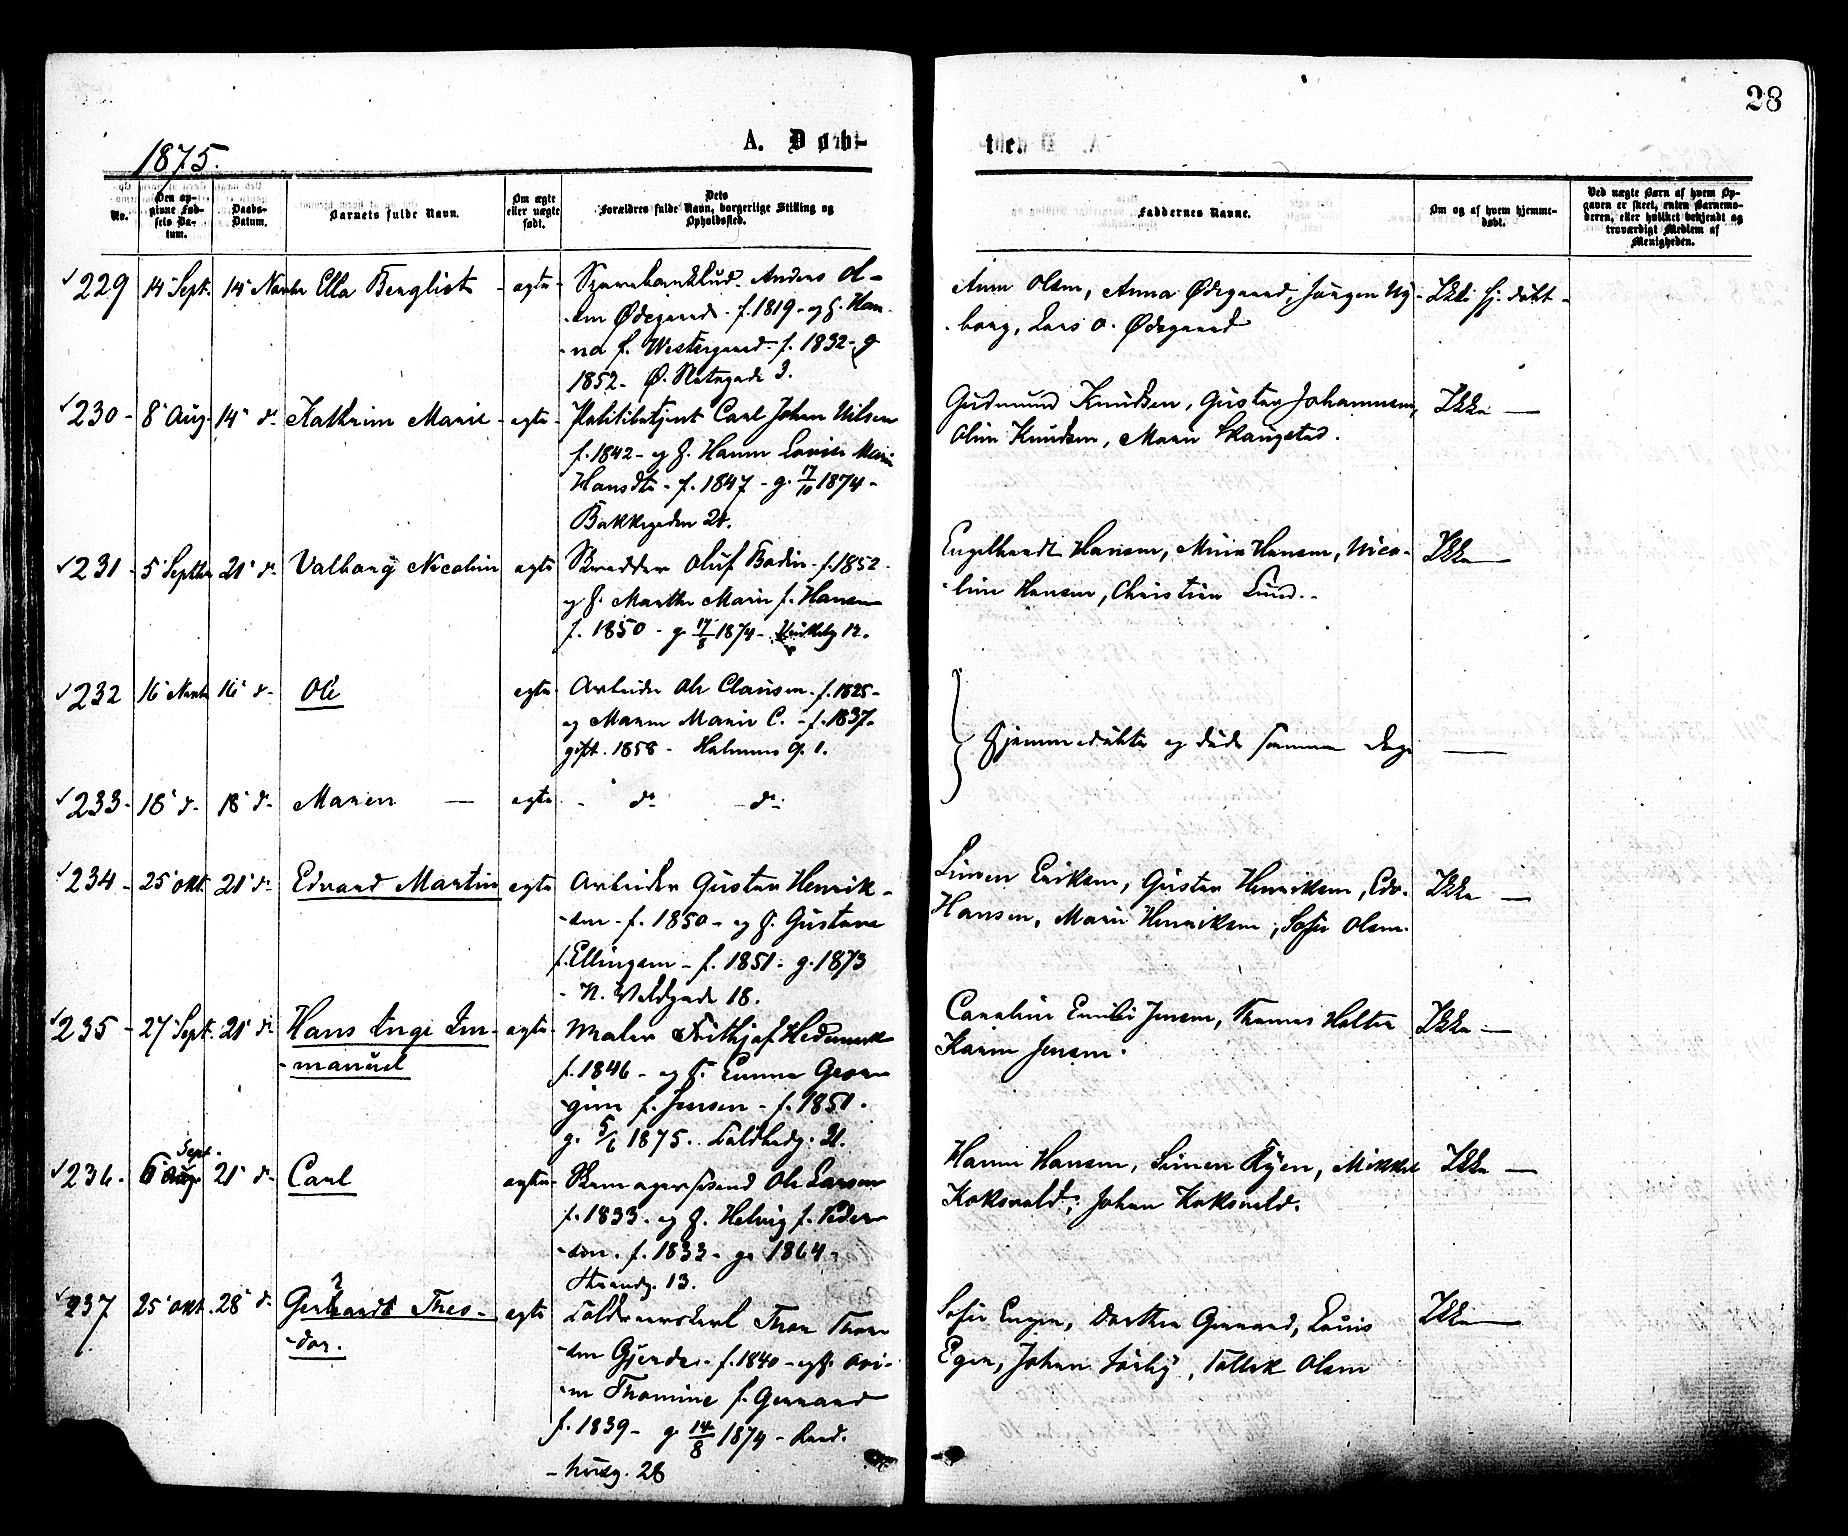 28
1875.
A. Døbte
No.
Den opgivne Fødsels Datum.
Daabs-Datum.
Barnets fulde Navn.
Om ægte eller uægte født.
Dets Forældres fulde Navn, borgerlige Stilling og Opholdssted.
Faddernes Navne.
Om og af hvem hjemmedøbt.
Ved uægte Børn af hvem Opgaven er skeet, enten Barnemoderen, eller hvilket bekjendt og troværdigt Medlem af Menigheden.
229 14 Sept. 14 Novbr Ella Bergliot - ægte - Anders Ol-
sen Ødegaard - f. 1819 - og H. Han-
na f. Westergaard - f. 1832 - g
1852 - Ø. Slotsgade 3.
Anne Olsen, Anna Ødegaard, Jørgen Ny-
borg, Lars O. Ødegaard
Ikke hj. døbt -
230 - 8 Aug. 14 d. Kathrine Marie - ægte - Politibetjent Carl Johan Nilsen
f. 1842 - og H. Hanne Lovise Marie
Hansdtr - f. 1847 - g. 17/10 1874 -
Bakkegaden 21.
Gudmund Knudsen, Gustav Johannesen,
Oline Knudsen, Marie Skaugstad.
Ikke —
231 - 5 Septbr 21 d. Valborg Nicoline ægte Skrædder Oluf Bodin - f. 1852 -
og H. Marthe Marie f. Hansen
f. 1850 - g. 17/8 1874 - 12.
Engelhardt Hansen, Mina Hansen, Nico-
line Hansen, Christian Lund.
Ikke —
232 16 Novbr 16 d. Ole ægte - Arbeider Ole Clausen - f. 1825 -
og Maren Marie C. - f. 1837 -
gift. 1858 - Holmens G. 1.
Hjemmedøbte og døde samme Dag —
233 - 16 d. 16 d. Maren — ægte - d. d.
234 - 25 Okt. 21 d. Edvard Martin ægte Arbeider Gustav Henrik-
sen - f. 1850 - og H. Gustava
f. Ellingsen - f. 1851 - g. 1873
- N. Voldgade 18.
Simen Eriksen, Gustav Henriksen, Edv.
Hansen, Marie Henriksen, Sofie Olsen.
Ikke —
235 - 27 Sept. 21 d. Hans Inge Im-
manuel
ægte - Maler Frithjof Hedemark
f. 1846 - og H. Emma Geor-
gine f. Jensen - f. 1851 -
g. 5/6 1875.
Caroline Emilie Jensen, Thomas Holter
Karen Jensen.
Ikke —
236 - 6 Aug Sept. 21 d. Carl ægte - Skomagersvend Ole Larsen
f. 1833 - og H. Helvig f. Peder-
sen - f. 1833 - g. 1864 -
Strandg. 13.
Hanne Hansen, Simen Ryen, Mikkel
Koksvold, Johan Koksvold.
Ikke —
237 25 Okt. 28 d. Gerhardt Theo-
dor.
ægte Thore Thor-
sen Gjerde - f. 1840 - og H. Ovi-
Thomine f. Gerrard
f. 1839 - g. 14/8 1874 - Raad-
husg. 26
Sofie Engen, Dorthea Gerrard, Louis
Egen, Johan Sørby, Tollef Olsen
Ikke —